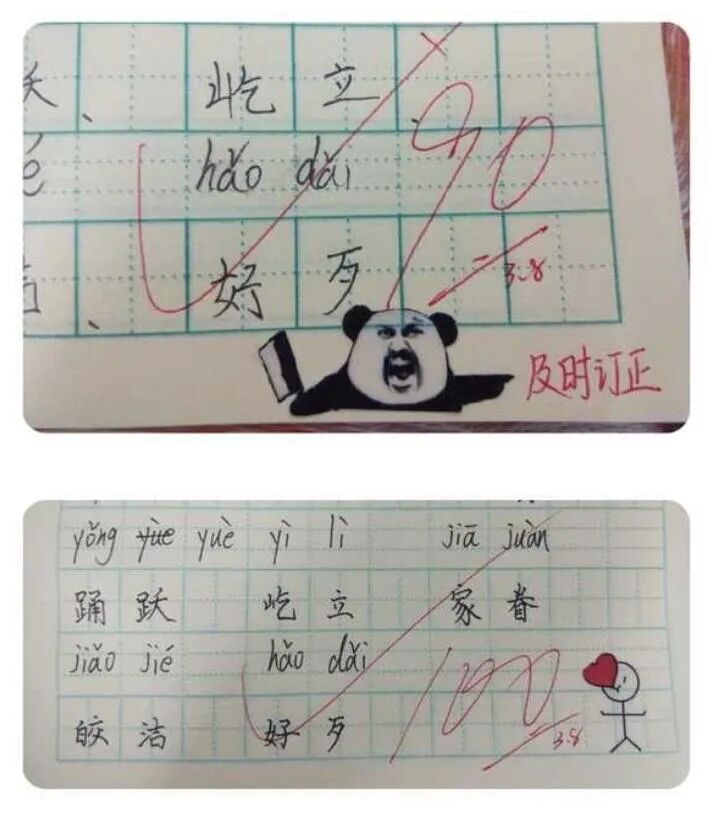 跃、 屹立
é hǎo dǎi
洁、 好歹
90
3.8
及时订正
yǒng yüè yuè yì lì jiā juàn
踊跃 屹立 家眷
jiǎo jié hǎo dǎi
皎洁 好歹
100
3.8